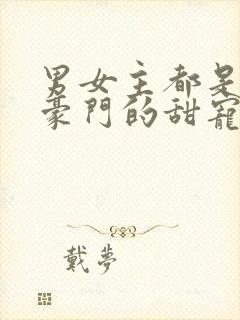 男女主都是
豪門的甜寵
戴夢